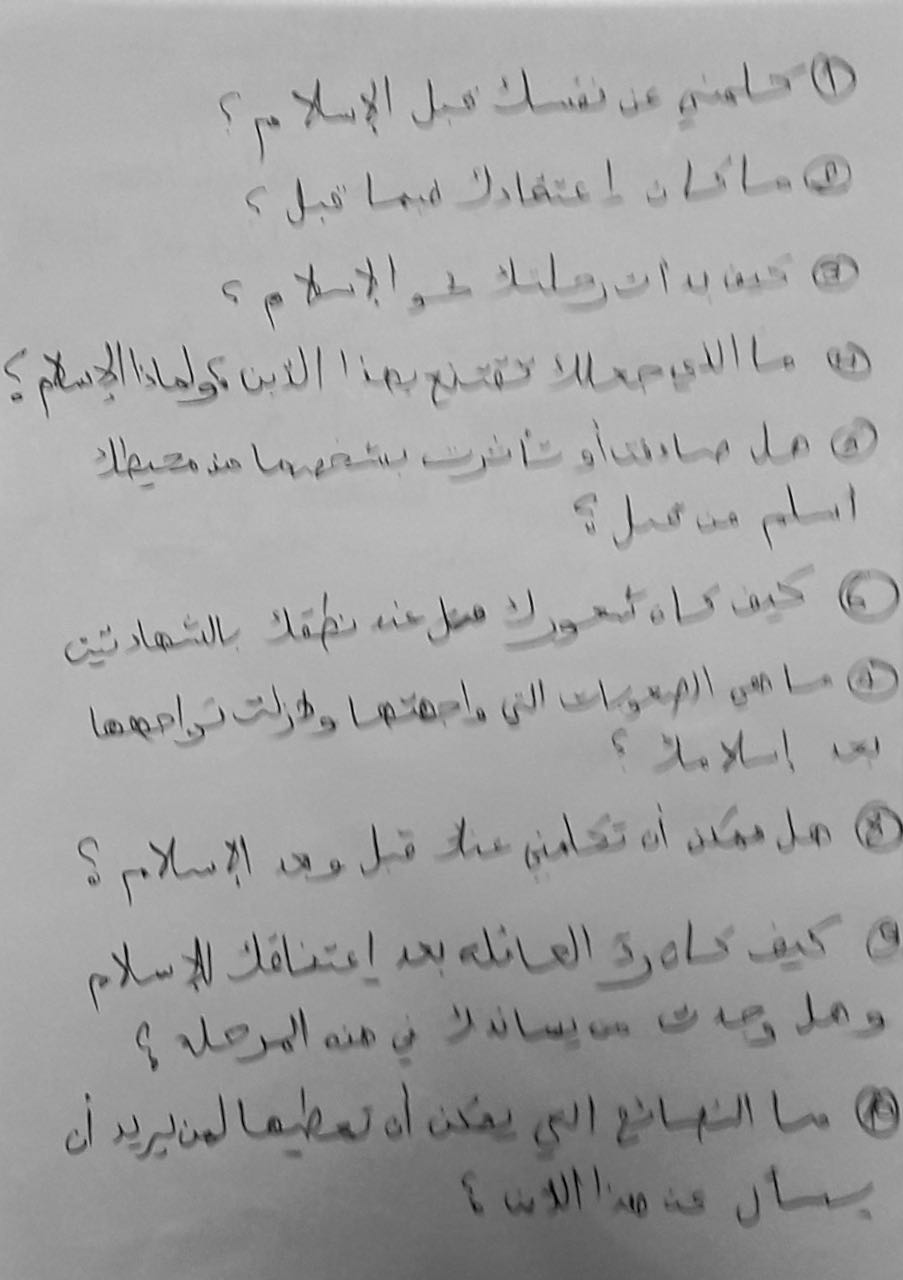 ① كلمني عن نفسك قبل الإسلام ؟
② ما كان إعتقادك فيما قبل ؟
③ كيف بدأت رحلتك نحو الإسلام ؟
④ ما الذي جعلك تقتنع بهذا الدين ؟ ولماذا الإسلام ؟
⑤ هل صادفت أو تأثرت بشخص ما من محيطك
اسلم من قبل ؟
⑥ كيف كان شعورك عند نطقك بالشهادتين
⑦ ما هي الصعوبات التي واجهتها ولازلت تواجهها
بعد إسلامك ؟
⑧ هل ممكن أن تكلمني عنك قبل وبعد الإسلام ؟
⑨ كيف كان رد العائله بعد إعتناقك للإسلام
وهل وجدت من يساندك في هذه المرحله ؟
⑩ ما النصائح التي يمكن أن تعطيها لمن يريد أن
يسأل عن هذا الدين ؟